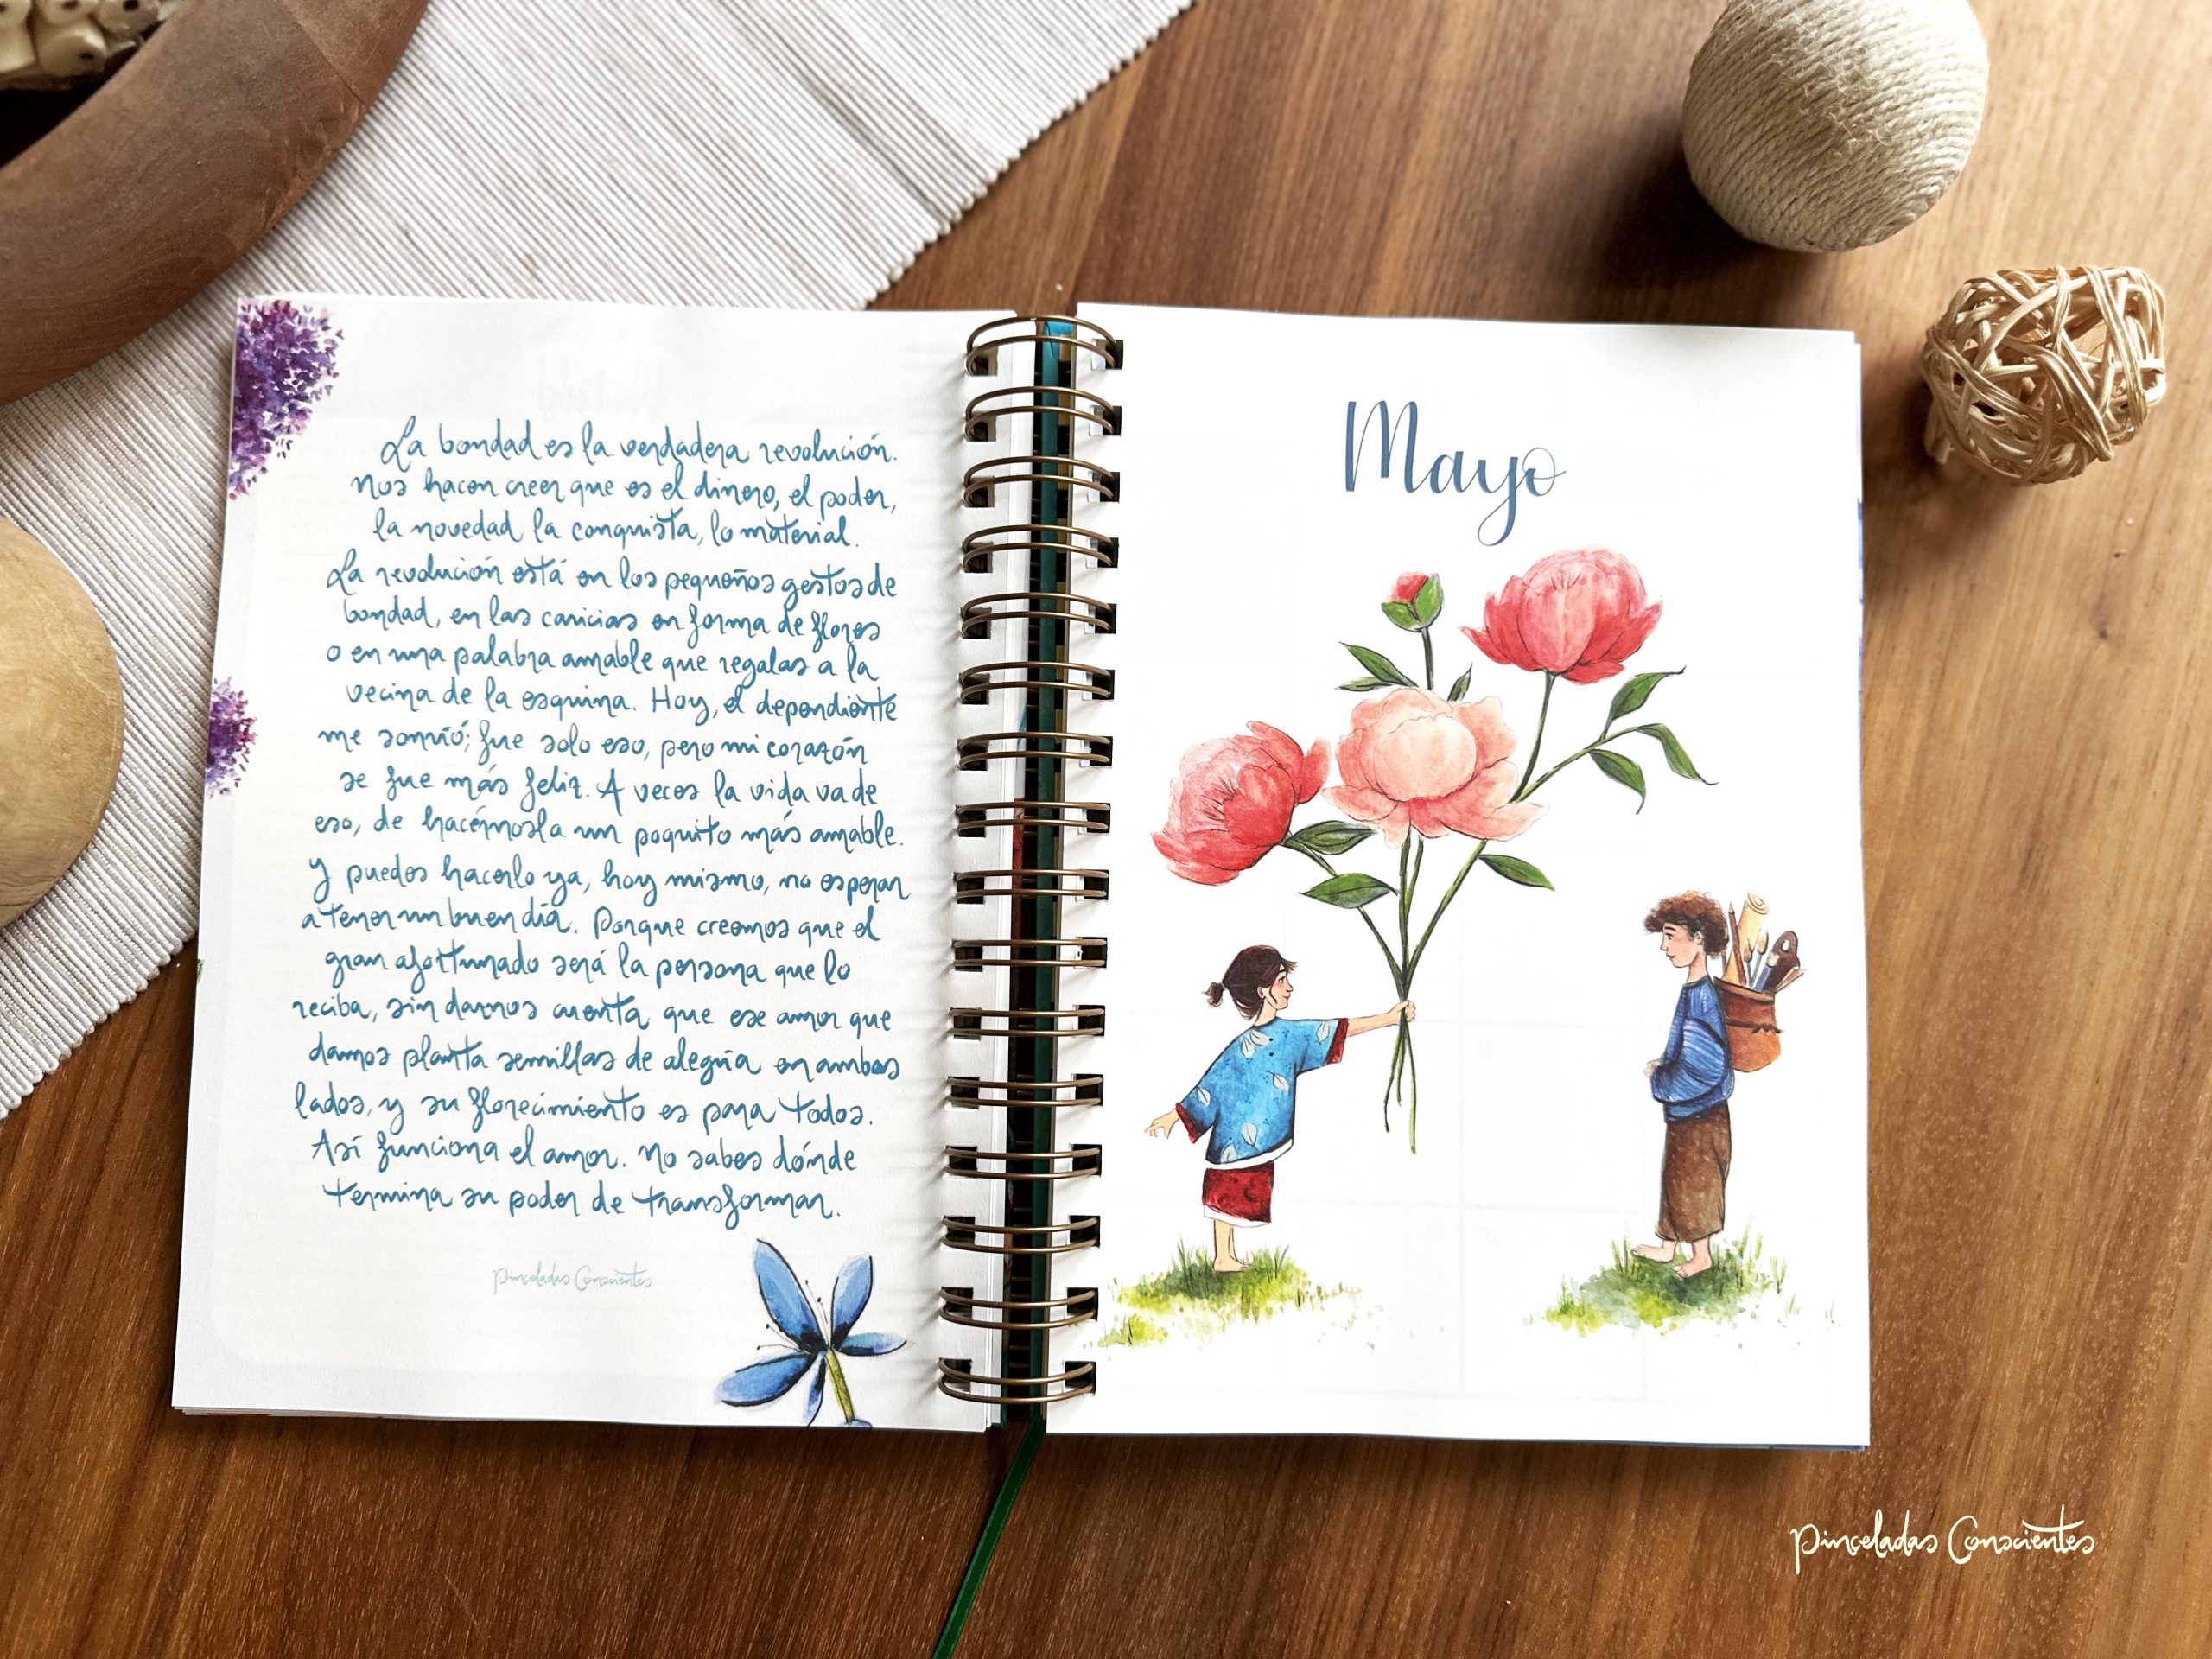 La bondad es la verdadera revolución.
Nos hacen creer que es el dinero, el poder,
la novedad, la conquista, lo material.
La revolución está en los pequeños gestos de
bondad, en las caricias en forma de flores
o en una palabra amable que regalas a la
vecina de la esquina. Hoy, el dependiente
me sonrió; fue solo eso, pero mi corazón
se fue más feliz. A veces la vida va de
eso, de hacérnosla un poquito más amable.
Y puedes hacerlo ya, hoy mismo, no esperar
a tener un buen día. Porque creemos que el
gran afortunado será la persona que lo
reciba, sin darnos cuenta que ese amor que
damos planta semillas de alegría en ambos
lados, y su florecimiento es para todos.
Así funciona el amor. No sabes dónde
termina su poder de transformar.
Pinceladas Conscientes
Mayo
Pinceladas Conscientes